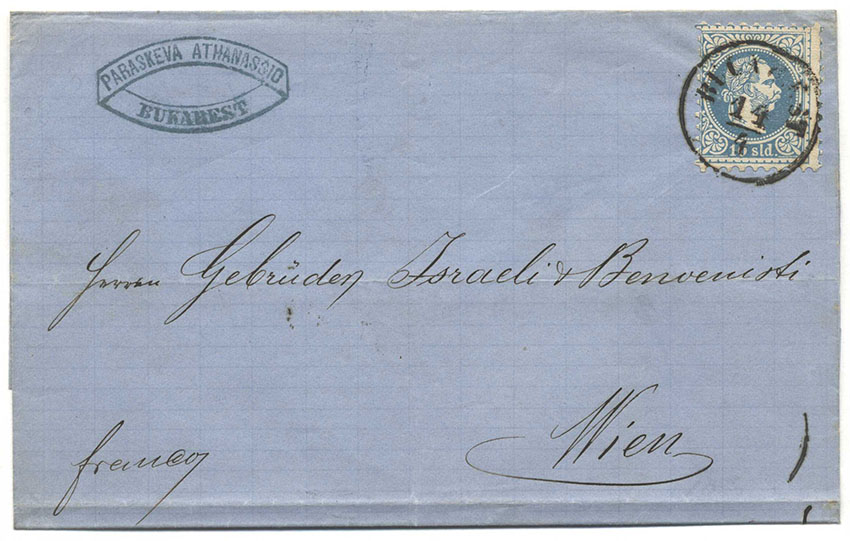 PARASKEVA ATHANASSIO
BUKAREST
BUKAREST
11
10 sld.
Herren Gebrüder Israeli & Benvenisti
Wien
franco